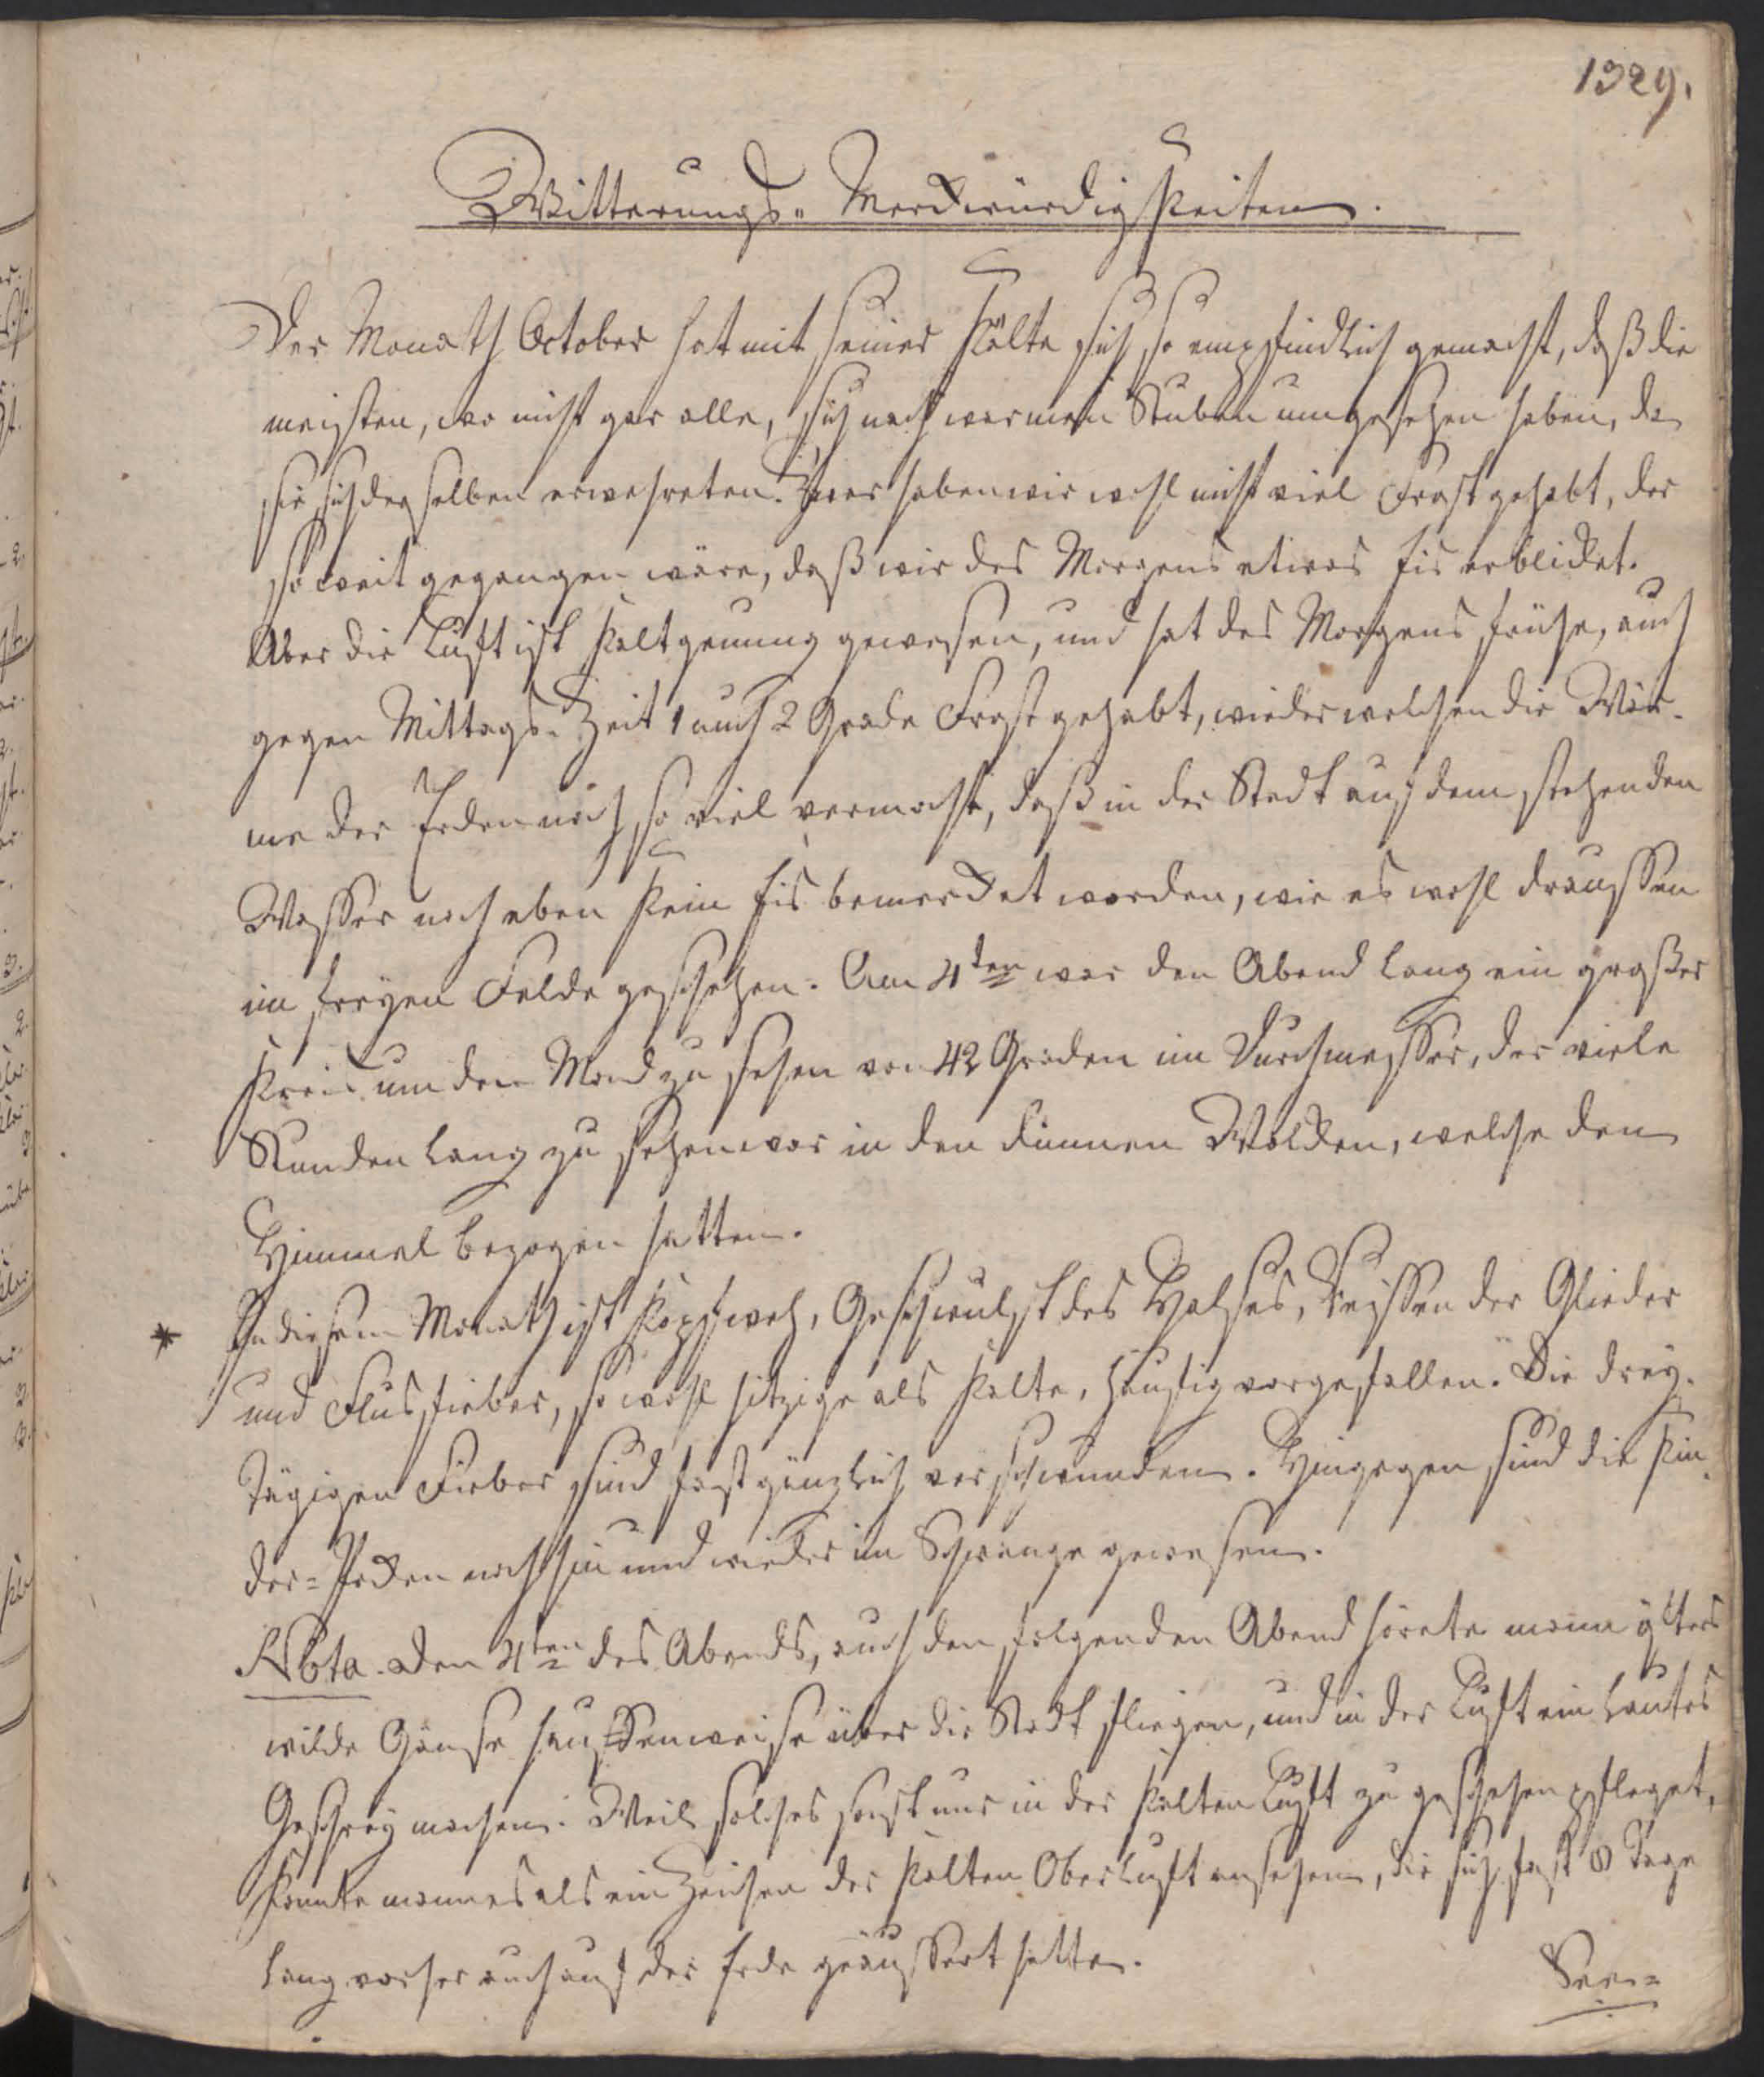 1329.
Witterungs-Merckwürdigkeiten.
Der Monath October hat mit seiner Kälte sich so empfindlich gemacht, daß die
meisten, wo nicht gar alle, sich nach warmen Stuben umgesehen haben, da
sie sich derselben erwehreten. Zwar haben wir wohl nicht viel Frost gehabt, der
so weit gegangen wäre, daß wir des Morgens etwas Eis erblicket.
Aber die Luft ist kalt genung gewesen, und hat des Morgens frühe, auch
gegen Mittags-Zeit 1 auch 2 Grade Frost gehabt, wieder welchen die Wär-
me der Erden noch so viel vermocht, daß in der Stadt auf dem stehenden
Wasser noch eben kein Eis bemercket worden, wie es wohl draussen
im freyen Felde geschehen. Am 4ten war den Abend lang ein großer
Kreis um den Mond zu sehen von 42 Graden im Durchmesser, der viele
Stunden lang zu sehen war in den dünnen Wolcken, welche den
Himmel bezogen hatten.
* In diesem Monath ist Kopfweh, Geschwulst des Halses, Reissen der Glieder
und Flusfieber, so wohl hitzige als kalte, häufig vorgefallen. Die drey-
tägigen Fieber sind fast gänzlich verschwunden. Hingegen sind die Kin-
der-Pocken noch hin und wieder im Schwange gewesen.
Nota. Den 4ten des Abends, auch den folgenden Abend hörete man öfters
wilde Gänse hauffenweise über die Stadt fliegen, und in der Luft ein lautes
Geschrey machen. Weil solches sonst nur in der kalten Luft zu geschehen pfleget,
konnte man es als ein Zeichen der kalten Oberluft ansehen, die sich fast 8 Tage
lang vorher auch auf der Erde geäussert hatte.